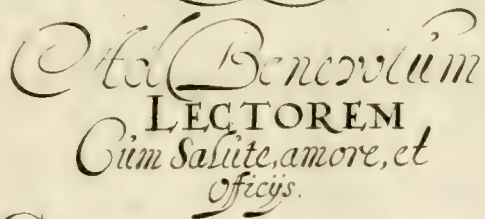 Ad Benevolum
LECTOREM
Cùm Salute, amore, et
Officijs.